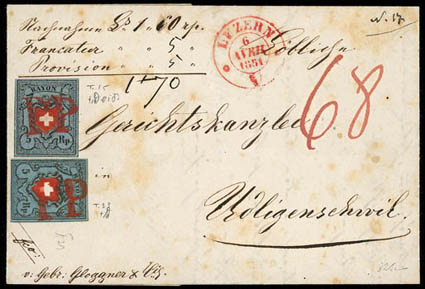 Nachnahme Frs 1 "60 rp.
Francatur " " 5 "
Provision " " 5 "
1"70
LUZERN
6
AVRIL
1851
Löbliche
68
RAYON
5 Rp.
PP
Gerichtskanzlei
5 Rp.
PP
in
Udligenschwil.
fco:
v: Gebr: Gloggner